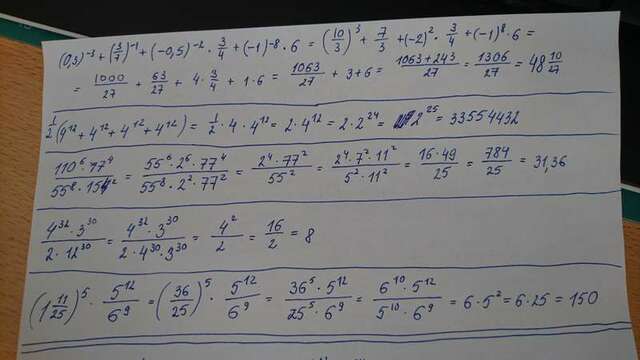 (0,3)⁻³ + (3/7)⁻¹ + (-0,5)⁻² · 3/4 + (-1)⁻⁸ · 6 = (10/3)³ + 7/3 + (-2)² · 3/4 + (-1)⁸ · 6 =
= 1000/27 + 63/27 + 4 · 3/4 + 1 · 6 = 1063/27 + 3 + 6 = 1063 + 243/27 = 1306/27 = 48 10/27
1/2 (4¹² + 4¹² + 4¹² + 4¹²) = 1/2 · 4 · 4¹² = 2 · 4¹² = 2 · 2²⁴ = 2²⁵ = 33554432
110⁶ · 77⁴ / 55⁸ · 154² = 55⁶ · 2⁶ · 77⁴ / 55⁸ · 2² · 77² = 2⁴ · 77² / 55² = 2⁴ · 7² · 11² / 5² · 11² = 16 · 49 / 25 = 784/25 = 31,36
4³² · 3³⁰ / 2 · 12³⁰ = 4³² · 3³⁰ / 2 · 4³⁰ · 3³⁰ = 4²/2 = 16/2 = 8
(1 11/25)⁵ · 5¹²/6⁹ = (36/25)⁵ · 5¹²/6⁹ = 36⁵ · 5¹² / 25⁵ · 6⁹ = 6¹⁰ · 5¹² / 5¹⁰ · 6⁹ = 6 · 5² = 6 · 25 = 150